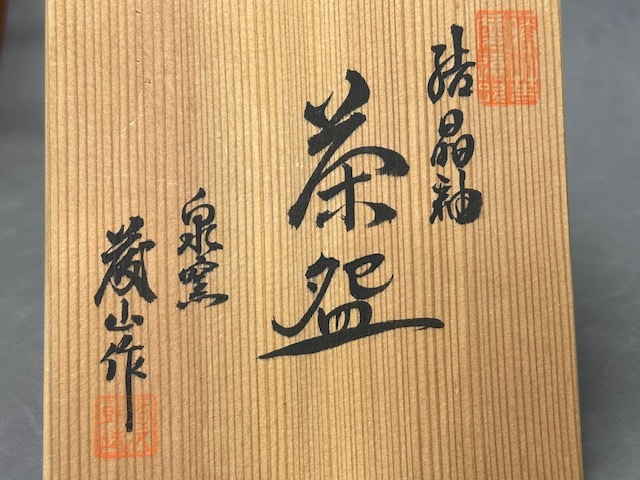 結晶釉
茶盌
泉窯
蔵山作